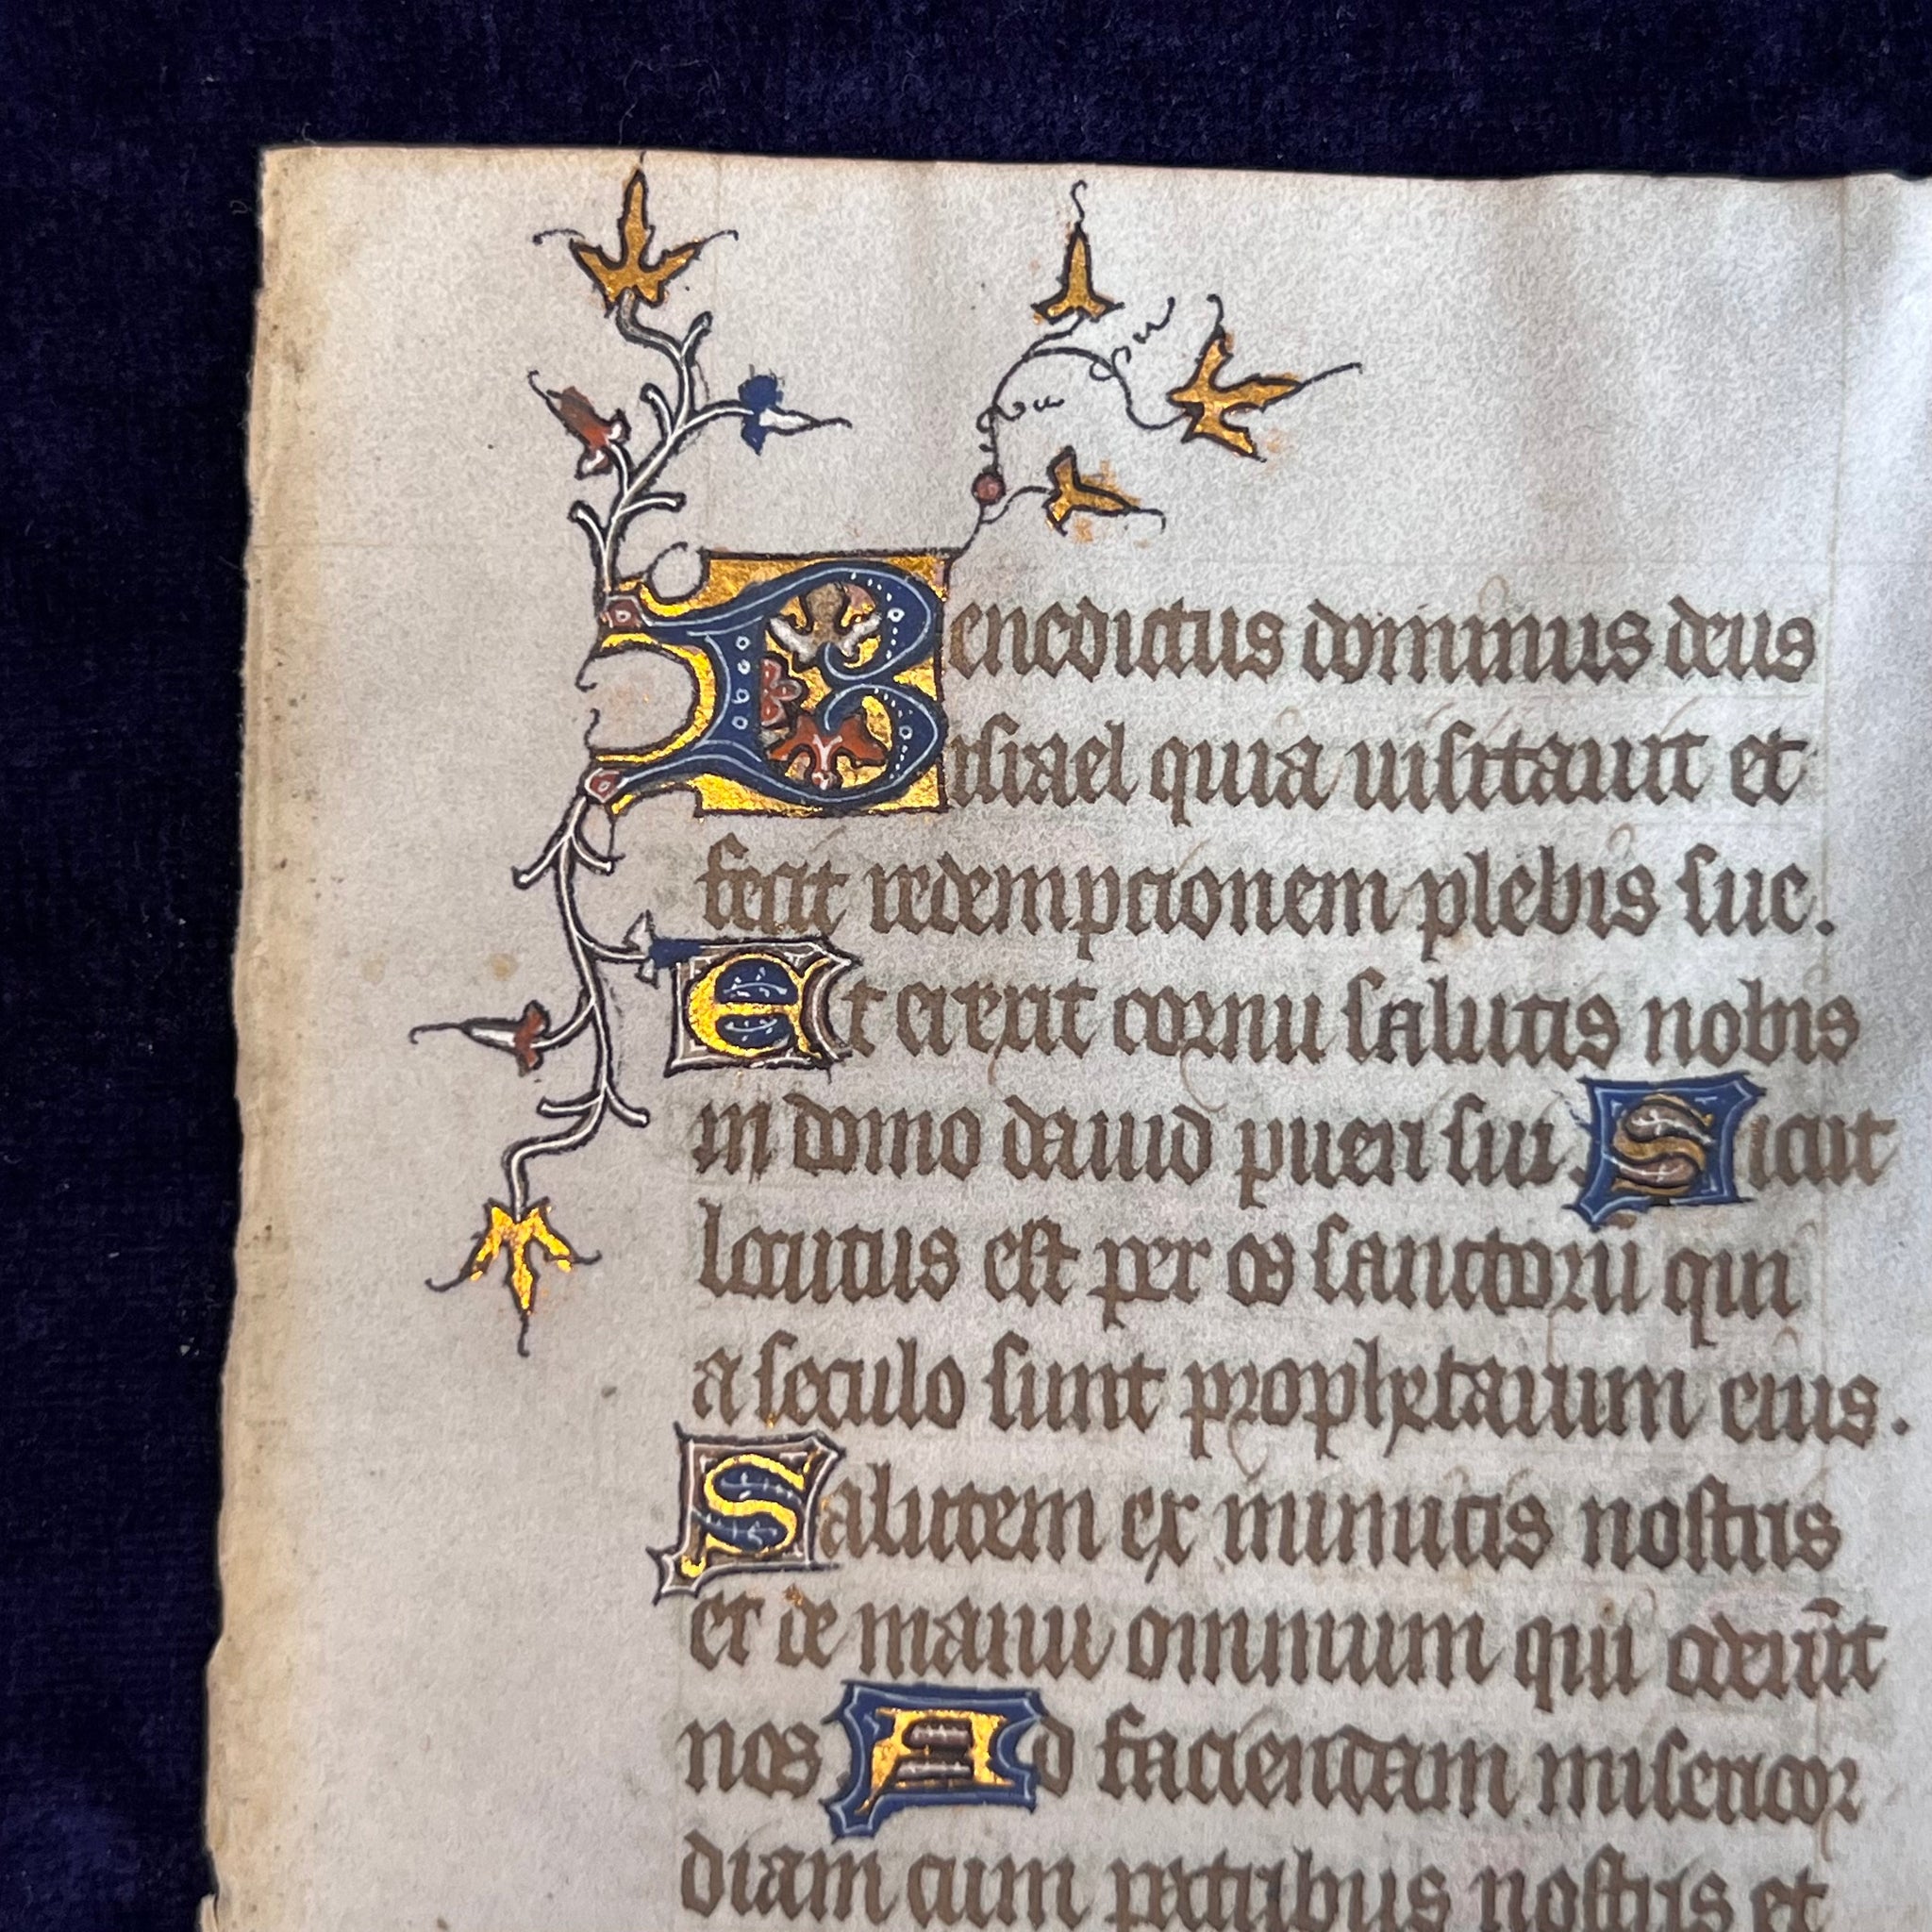 Benedictus dominus deus
israel quia uisitauit et
fecit redempcionem plebis sue.
Et erexit cornu salutis nobis
in domo dauid pueri sui. Sicut
locutus est per os sanctorū qui
a seculo sunt prophetarum eius.
Salutem ex inimicis nostris
et de manu omnium qui oderūt
nos Ad faciendam misericor
diam cum patribus nostris et